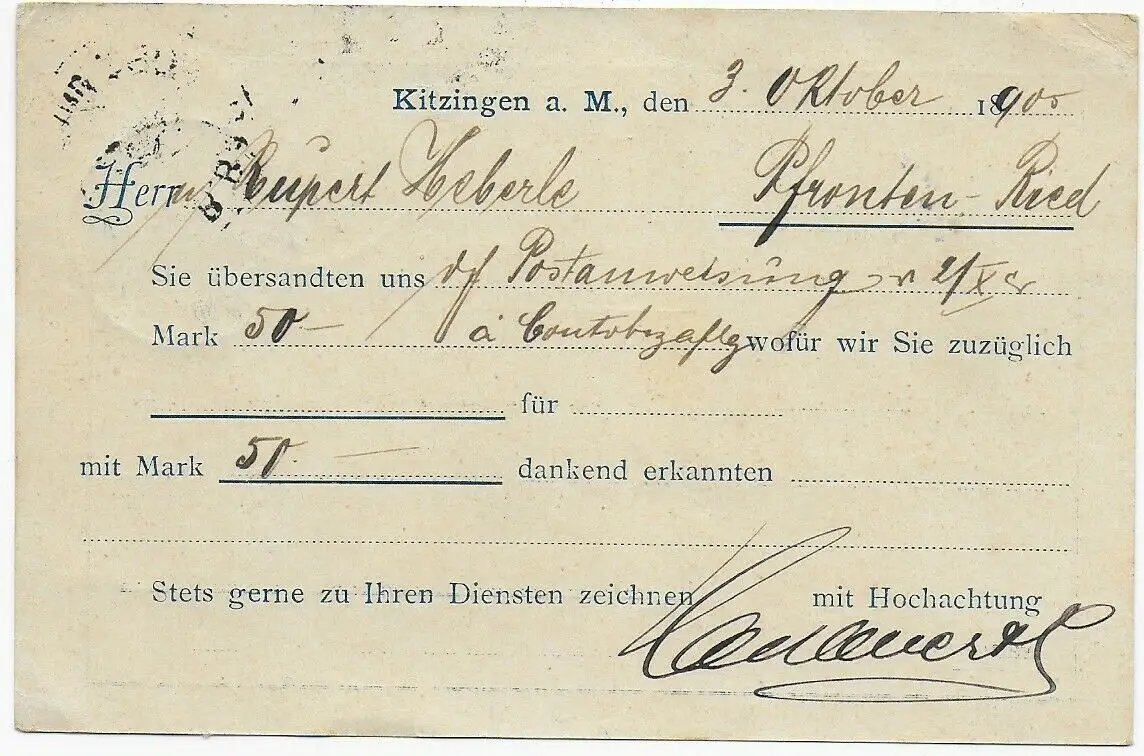 Kitzingen a. M., den 3. Oktober 1900
Herrn Rupert Heberle Pfronten-Ried
Sie übersandten uns Postanweisung 2/X
Mark 50 – à wofür wir Sie zuzüglich
für
mit Mark 50. – dankend erkannten
Stets gerne zu Ihren Diensten zeichnen mit Hochachtung